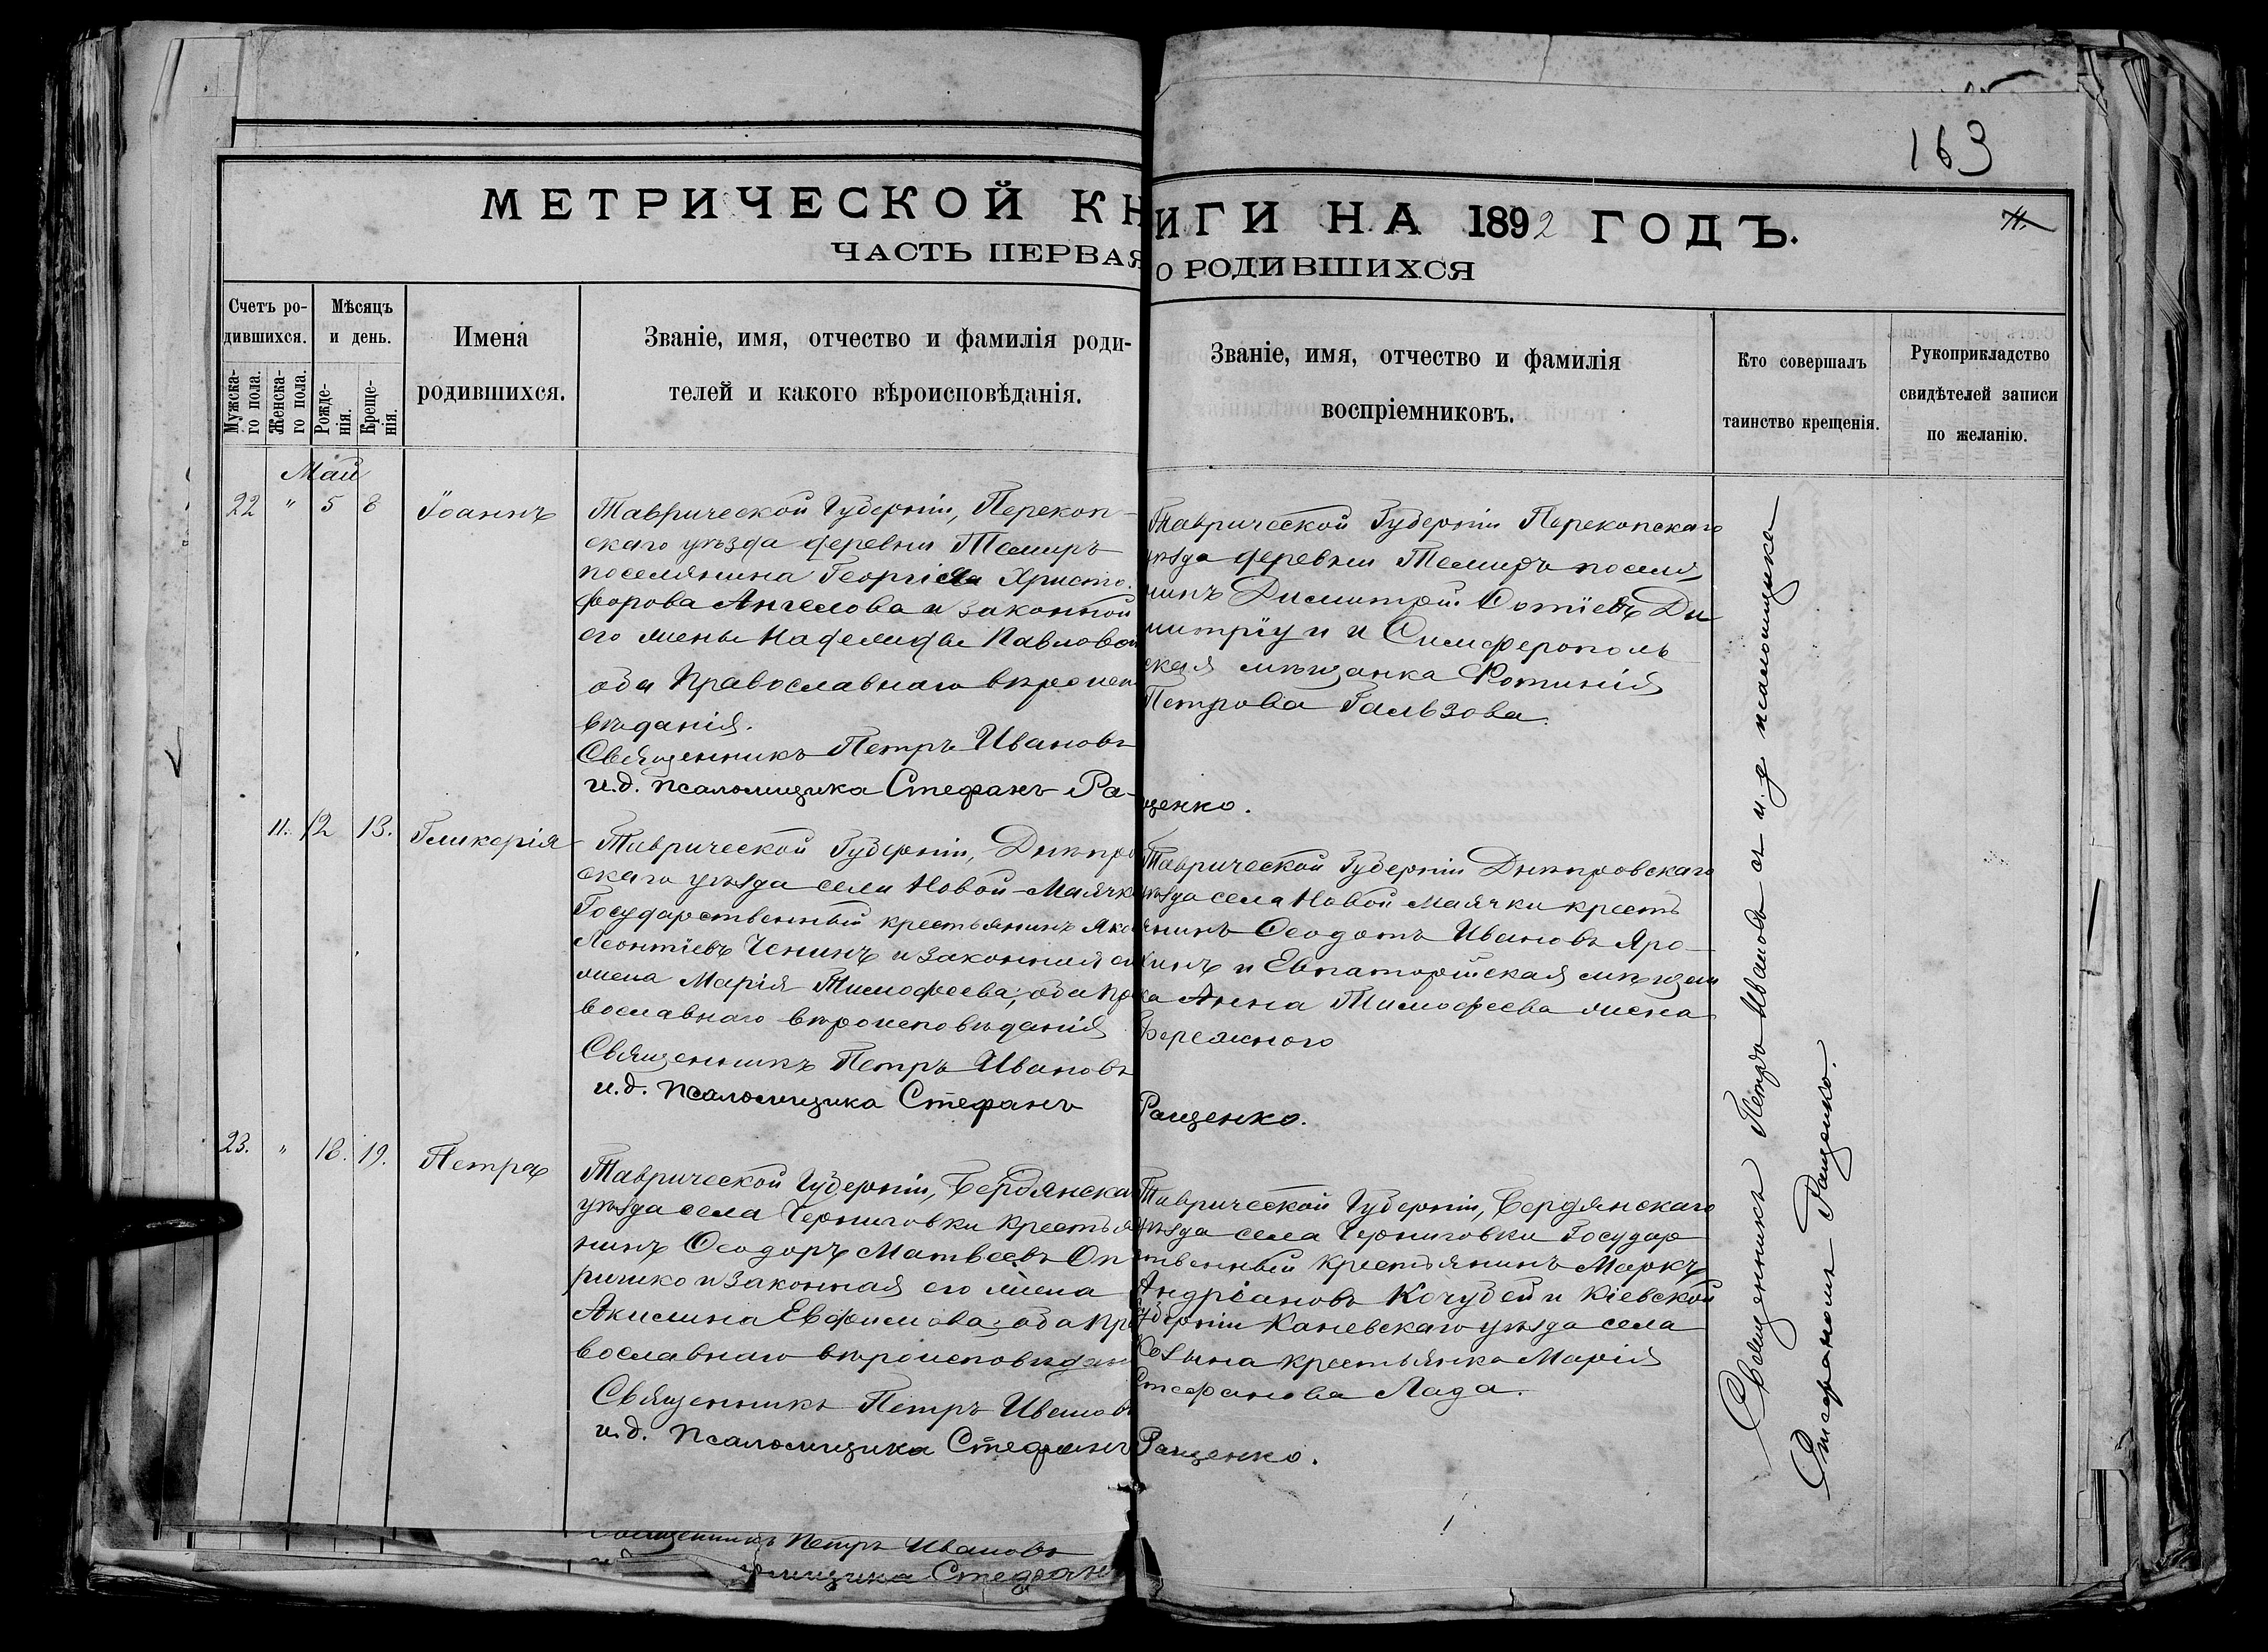 163
МЕТРИЧЕСКОЙ КНИГИ НА 1892 ГОДЪ.
ЧАСТЬ ПЕРВАЯ О РОДИВШИХСЯ
Счетъ родившихся.
Мужска-
го пола.
Женска-
го пола.
Мѣсяцъ
и день.
Рожде-
нія.
Креще-
нія.
Имена
родившихся.
Званіе, имя, отчество и фамилія роди-
телей и какого вѣроисповѣданія.
Званіе, имя, отчество и фамилія
воспріемниковъ.
Кто совершалъ
таинство крещенія.
Рукоприкладство
свидѣтелей записи
по желанію.
Май
22 " 5 8 Іоаннъ
Таврической Губерніи, Перекоп-
скаго уѣзда деревни Темиръ
поселянина Георгія Христо-
форова Ангелова и законной
его жены Павловой
оба Православнаго вѣроиспо
вѣданія.
Священникъ Петръ Ивановъ
и.д. псаломщика Стефанъ Ра-
Таврической Губерніи Перекопскаго
уѣзда деревни Темиръ поселя
нинъ Димитрій Ди
митріу и Симферополь
ская мѣщанка Фотинія
Петрова
щенко.
11. 12 13. Гликерія
Таврической Губерніи, Днѣпров
скаго уѣзда села Новой-Маячки
Государственный крестьянинъ Яков
Леонтіевъ Ченинъ и законная его
жена Марія Тимофеева, оба пра
вославнаго вѣроисповѣданія
Священникъ Петръ Ивановъ
и.д. псаломщика Стефанъ
Таврической Губерніи Днѣпровскаго
уѣзда села Новой Маячки кресть
янинъ Ѳеодотъ Ивановъ Яро-
хинъ и Евпаторійская мѣщан
ка Анна Тимофеева жена
Бережного
Ращенко.
23. " 18. 19. Петръ
Таврической Губерніи, Бердянска
уѣзда села Черниговки крестья
нинъ Ѳеодоръ Матвеевъ Оп
ришко и законная его жена
Акилина Евфимова, оба пра
вославнаго вѣроисповѣдан
Священникъ Петръ Ивановъ
и.д. псаломщика Стефанъ
Таврической Губерніи, Бердянскаго
уѣзда села Черниговки Государ
ственный крестьянинъ Маркъ
Андріановъ Кочубей и Кіевской
губерніи Каневскаго уѣзда села
крестьянка Марія
Стефанова Лада.
Ращенко.
Священникъ Петръ Ивановъ съ и.д псаломщика
Стефаномъ Ращенко.
Священникъ Петръ Ивановъ
псаломщика Стефанъ